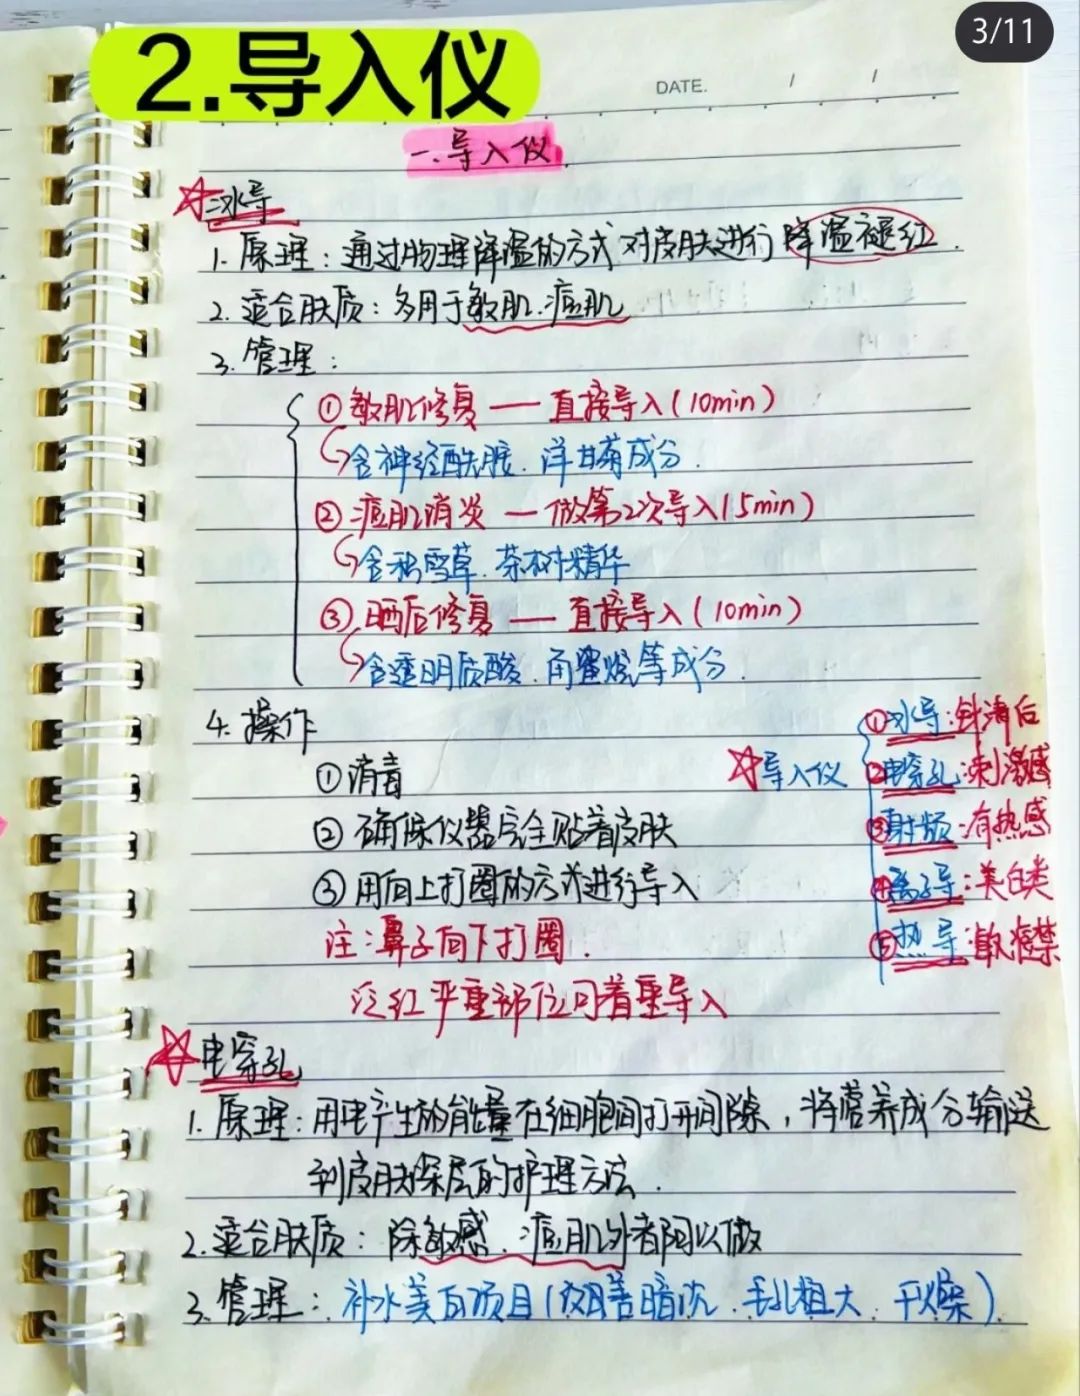 3/11
2.导入仪
DATE. / /
一.导入仪
冰导
1. 原理：通过物理降温的方式对皮肤进行降温褪红.
2. 适合肤质：多用于敏肌.痘肌
3. 管理：
① 敏肌修复 — 直接导入(10min)
含神经酰胺.洋甘菊成分.
② 痘肌消炎 — 做第2次导入(5min)
含积雪草.茶树精华
③ 晒后修复 — 直接导入(10min)
含透明质酸.角鲨烷等成分.
4. 操作
① 消毒
② 确保仪器完全贴着皮肤
③ 用向上打圈的方式进行导入
注：鼻子向下打圈.
泛红严重部位可着重导入
导入仪
①冰导：针清后
②电穿孔：刺激感
③射频：有热感
④离子导：美白类
⑤热导：敏痘禁
电穿孔
1. 原理：用电产生的能量在细胞间打开间隙，将营养成分输送
到皮肤深层的护理方法.
2. 适合肤质：除敏感.痘肌外者都可以做
3. 管理：补水美白项目(改善暗沉.毛孔粗大.干燥)